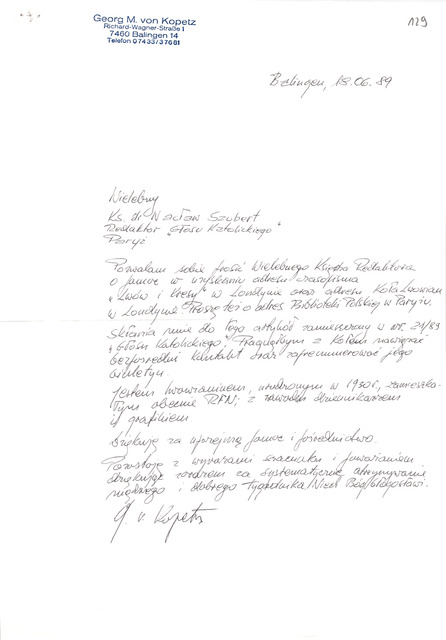 129
Georg M. von Kopetz
Richard-Wagner-Straße 1
7460 Balingen 14
Telefon 07433/37681
Balingen, 18.06.89
Wielebny
Ks. dr Wacław Szubert
Redaktor "Głosu Katolickiego"
Paryż
Pozwalam sobie prosić Wielebnego Księdza Redaktora
o pomoc w uzyskaniu adresu czasopisma
"Lwów i Kresy" w Londynie oraz adresu Koła Lwowian
w Londynie. Proszę też o adres Biblioteki Polskiej w Paryżu.
Skłania mnie do tego artykuł zamieszczony w nr. 21/89
"Głosu Katolickiego". Pragnąłbym z Kołem nawiązać
bezpośredni kontakt oraz zaprenumerować jego
biuletyn.
Jestem lwowianinem, urodzonym w 1930 r., zamieszka-
łym obecnie RFN; z zawodu dziennikarzem
i grafikiem
Dziękuję za uprzejmą pomoc i pośrednictwo.
Pozostaję z wyrazami szacunku i poważaniem
dziękując zarazem za systematyczne otrzymywanie
mądrego i dobrego tygodnika. Niech Bóg błogosławi.
G. v. Kopetz